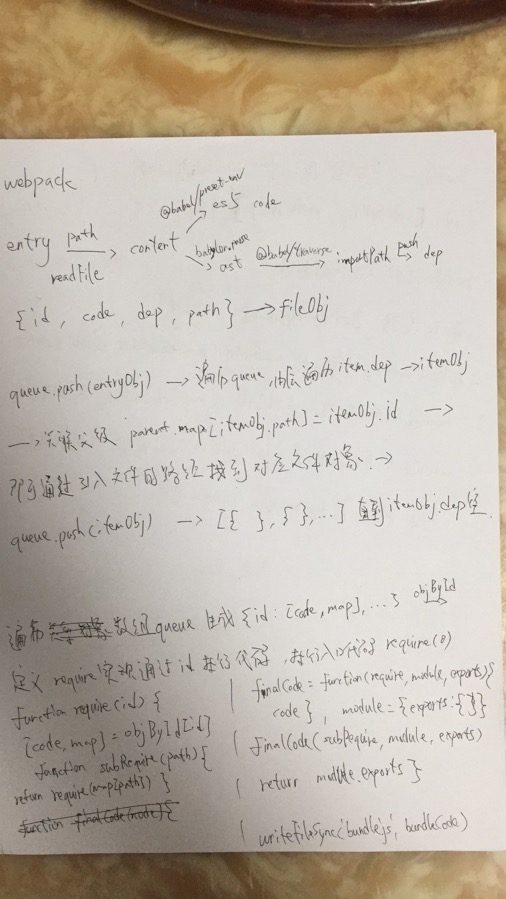 webpack
@babel/preset-env
es5 code
entry path readFile → content babylon.parse ast @babel/traverse → importPath push → dep
{id, code, dep, path} → fileObj
queue.push(entryObj) → 遍历queue,内层遍历item.dep → itemObj
→ 关联父级 parent.map[itemObj.path] = itemObj.id →
即可通过引入文件的路径找到对应文件对象 →
queue.push(itemObj) → [{ }, { },...] 直到itemObj.dep空
遍历数组queue 生成 {id: [code, map],...} objById →
定义 require实现通过id执行代码,执行入口代码 require(0)
function require(id) {
[code, map] = objById[id]
function subRequire(path) {
return require(map[path]) }
function finalCode(code) {
finalCode = function(require, module, exports) {
code } , module = {exports: {}}
finalCode(subRequire, module, exports)
return module.exports }
writeFileSync('bundle.js', bundleCode)